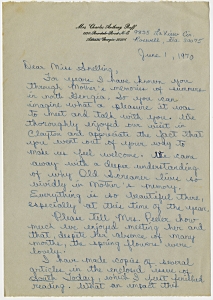 Mrs. Charles Anthony Ruff
June 1, 1970
Dear Miss Snelling,
For years I have known you
through Mother's memories of summers
in north Georgia. So you can
imagine what a pleasure it was
to meet and talk with you. We
thoroughly enjoyed our visit in
Clayton and appreciate the fact that
you went out of your way to
make us feel welcome. I came
away with a deeper understanding
of why Old Screamer lives so
vividly in Mother's memory.
Everything is so beautiful there,
especially at this time of the year.
Please tell Mrs.
much we enjoyed meeting her and
that despite her absence of many
months the spring flowers were
lovely.
I have made copies of several
articles in the enclosed issue of
South Today which I just finished
reading. What an impact the